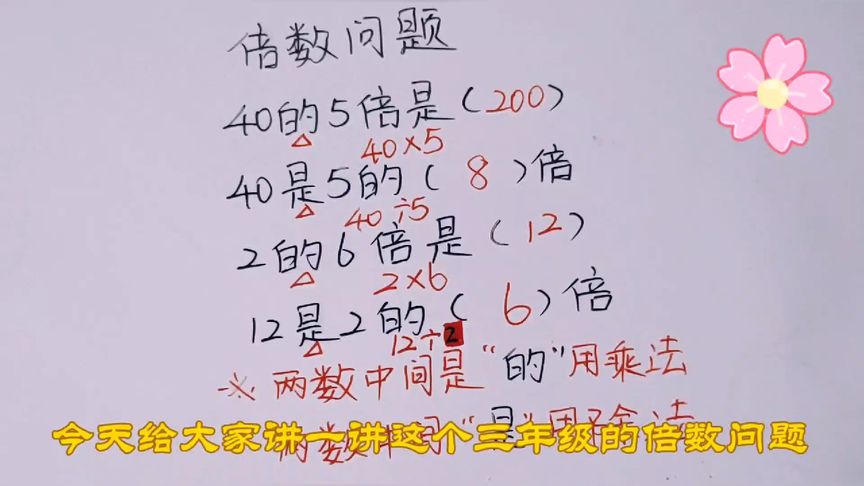 倍数问题
40的5倍是(200)
40×5
40是5的(8)倍
40÷5
2的6倍是(12)
2×6
12是2的(6)倍
12÷2
※两数中间是"的"用乘法
两数中间"是"用除法
今天给大家讲一讲这个三年级的倍数问题